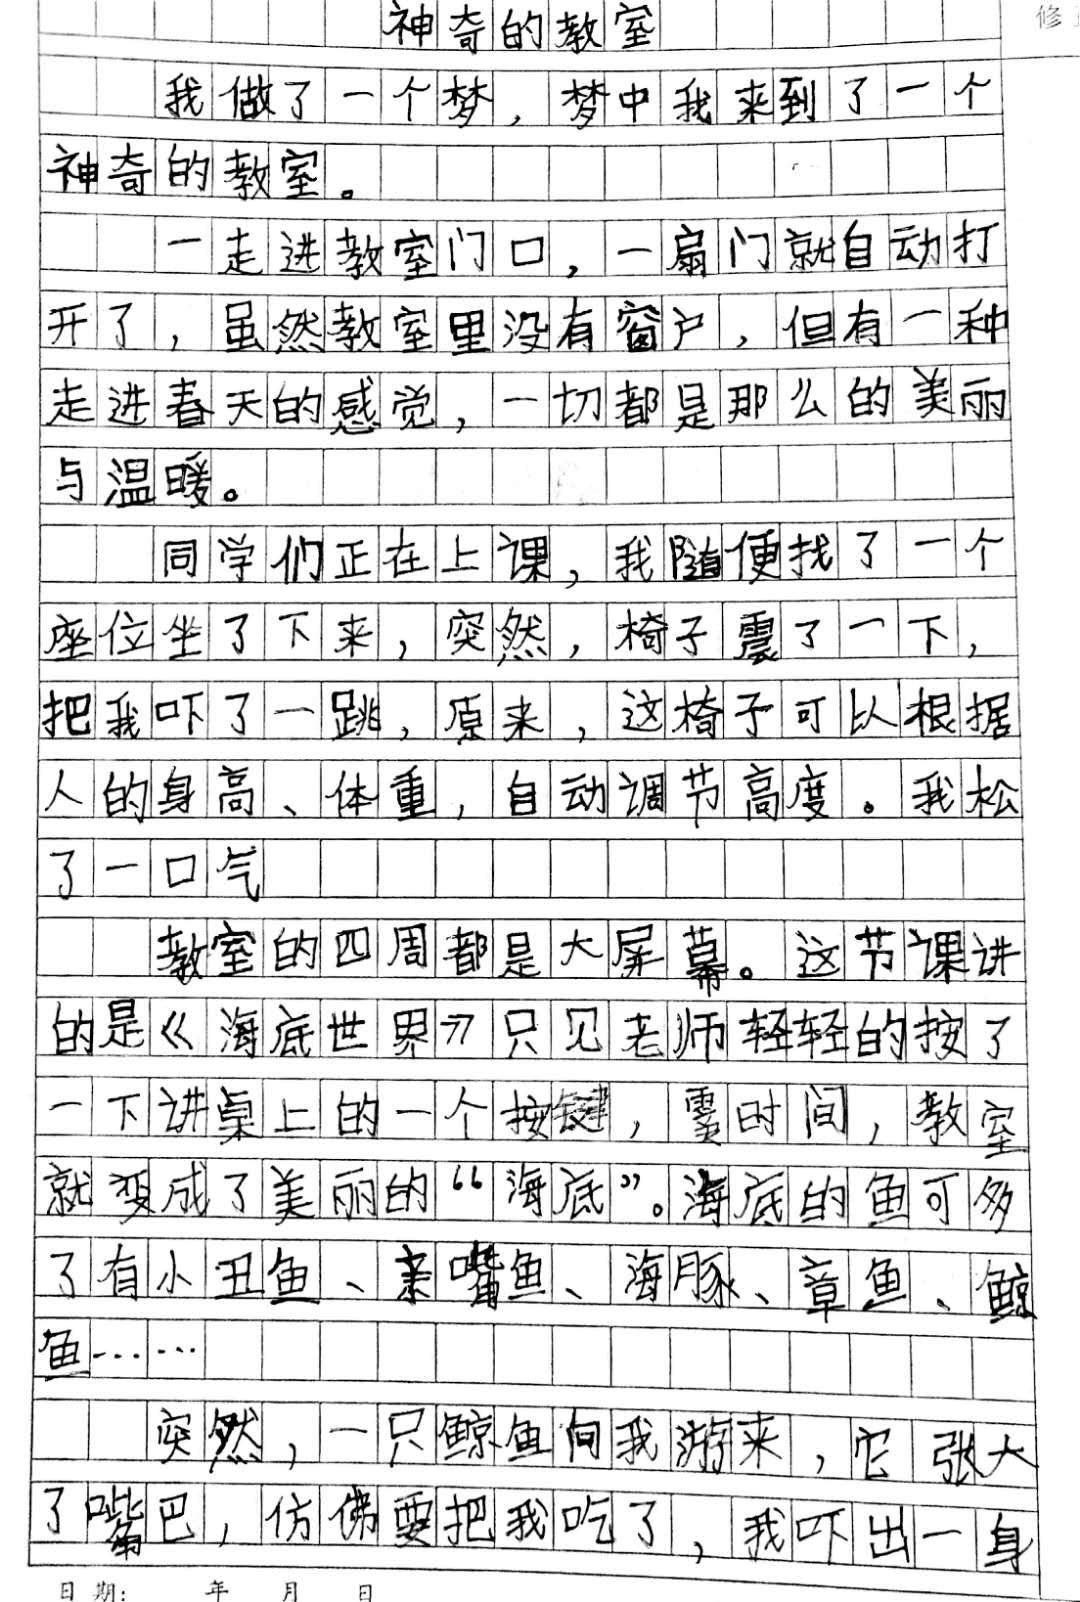 神奇的教室
修
我做了一个梦，梦中我来到了一个
神奇的教室。
一走进教室门口，一扇门就自动打
开了，虽然教室里没有窗户，但有一种
走进春天的感觉，一切都是那么的美丽
与温暖。
同学们正在上课，我随便找了一个
座位坐了下来，突然，椅子震了一下，
把我吓了一跳，原来，这椅子可以根据
人的身高、体重，自动调节高度。我松
了一口气
教室的四周都是大屏幕。这节课讲
的是《海底世界》只见老师轻轻的按了
一下讲桌上的一个按键，霎时间，教室
就变成了美丽的“海底”。海底的鱼可多
了有小丑鱼、亲嘴鱼、海豚、章鱼、鲸
鱼……
突然，一只鲸鱼向我游来，它张大
了嘴巴，仿佛要把我吃了，我吓出一身
日期： 年 月 日